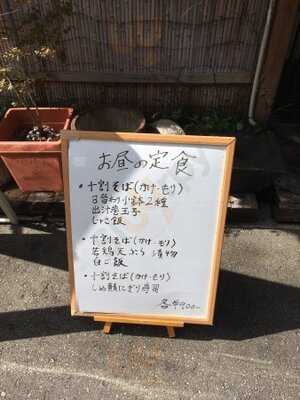 お昼の定食
・十割そば(かけ・もり)
日替わり小鉢2種
出汁巻玉子
じゃこ飯
・十割そば(かけ・もり)
若鶏天ぷら 漬物
白ご飯
・十割そば(かけ・もり)
しめ鯖にぎり寿司
各¥900-